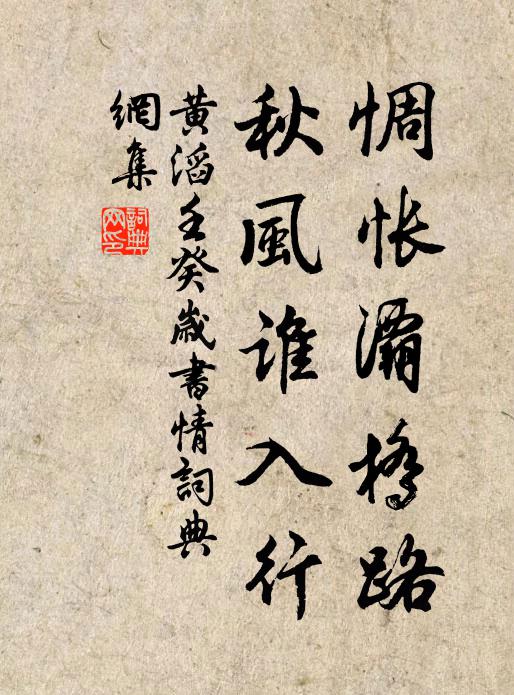 惆怅灞橋路
秋風誰入行
黄滔壬癸歲書情詞典
網集
詞典
网印